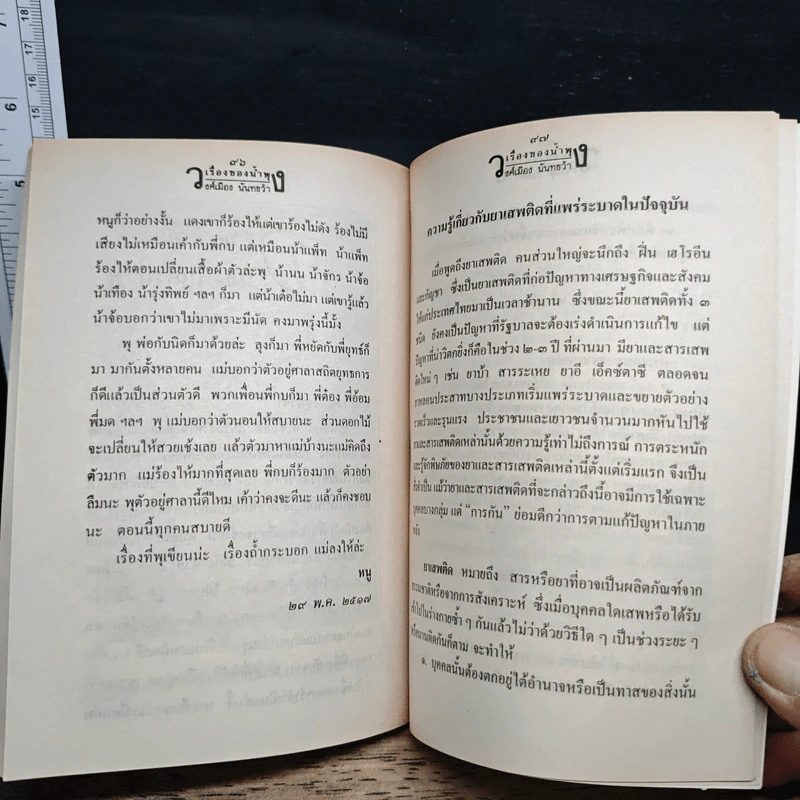 ๙๖
เรื่องของน้ำพุ
วงศ์เมือง นันทขว้าง
หนูก็ว่าอย่างงั้น แดงเขาก็ร้องไห้แต่เขาร้องไม่ดัง ร้องไม่มี
เสียงไม่เหมือนเค้ากับพี่กบ แต่เหมือนน้าแพ็ท น้าแพ็ท
ร้องไห้ตอนเปลี่ยนเสื้อผ้าตัวล่ะพุ น้านน น้าจักร น้าจ้อ
น้าเทือง น้ารุ่งทิพย์ ฯลฯ ก็มา แต่น้าเต๋อไม่มา แต่เขารู้แล้ว
น้าจ้อบอกว่าเขาไม่มาเพราะมีนัด คงมาพรุ่งนี้มั้ง
พุ พ่อกับนิดก็มาด้วยล่ะ ลุงก็มา พี่หยัดกับพี่ยุทธ์ก็
มา มากันตั้งหลายคน แม่บอกว่าตัวอยู่ศาลาสถิตยุทธการ
ก็ดีแล้วเป็นส่วนตัวดี พวกเพื่อนพี่กบก็มา พี่ต๋อง พี่อ้อม
พี่มด ฯลฯ พุ แม่บอกว่าตัวนอนให้สบายนะ ส่วนดอกไม้
จะเปลี่ยนให้สวยเช้งเลย แล้วตัวมาหาแม่บ้างนะแม่คิดถึง
ตัวมาก แม่ร้องไห้มากที่สุดเลย พี่กบก็ร้องมาก ตัวอย่า
ลืมนะ พุตัวอยู่ศาลานี้ดีไหม เค้าว่าคงจะดีนะ แล้วก็คงชอบ
นะ ตอนนี้ทุกคนสบายดี
เรื่องที่พุเขียนน่ะ เรื่องถ้ำกระบอก แม่ลงให้ล่ะ
หนู
๒๙ พ.ค. ๒๕๑๗
๙๗
เรื่องของน้ำพุ
วงศ์เมือง นันทขว้าง
ความรู้เกี่ยวกับยาเสพติดที่แพร่ระบาดในปัจจุบัน
เมื่อพูดถึงยาเสพติด คนส่วนใหญ่จะนึกถึง ฝิ่น เฮโรอีน
และกัญชา ซึ่งเป็นยาเสพติดที่ก่อปัญหาทางเศรษฐกิจและสังคม
ให้แก่ประเทศไทยมาเป็นเวลาช้านาน ซึ่งขณะนี้ยาเสพติดทั้ง ๓
ชนิด ยังคงเป็นปัญหาที่รัฐบาลจะต้องเร่งดำเนินการแก้ไข แต่
ปัญหาที่น่าวิตกยิ่งก็คือในช่วง ๒-๓ ปี ที่ผ่านมา มียาและสารเสพ
ติดใหม่ๆ เช่น ยาบ้า สารระเหย ยาอี เอ็คซ์ตาซี ตลอดจน
ยาหลอนประสาทบางประเภทเริ่มแพร่ระบาดและขยายตัวอย่าง
รวดเร็วและรุนแรง ประชาชนและเยาวชนจำนวนมากหันไปใช้
ยาและสารเสพติดเหล่านั้นด้วยความรู้เท่าไม่ถึงการณ์ การตระหนัก
และรู้จักพิษภัยของยาและสารเสพติดเหล่านี้ตั้งแต่เริ่มแรก จึงเป็น
สิ่งจำเป็น แม้ว่ายาและสารเสพติดที่จะกล่าวถึงนี้อาจมีการใช้เฉพาะ
บุคคลบางกลุ่ม แต่ “การกัน” ย่อมดีกว่าการตามแก้ปัญหาในภาย
หลัง
ยาเสพติด หมายถึง สารหรือยาที่อาจเป็นผลิตภัณฑ์จาก
ธรรมชาติหรือจากการสังเคราะห์ ซึ่งเมื่อบุคคลใดเสพหรือได้รับ
เข้าไปในร่างกายซ้ำ ๆ กันแล้วไม่ว่าด้วยวิธีใด ๆ เป็นช่วงระยะ ๆ
หรือนานติดกันก็ตาม จะทำให้
๑. บุคคลนั้นต้องตกอยู่ใต้อำนาจหรือเป็นทาสของสิ่งนั้น
7
6
5
18
17
16
15